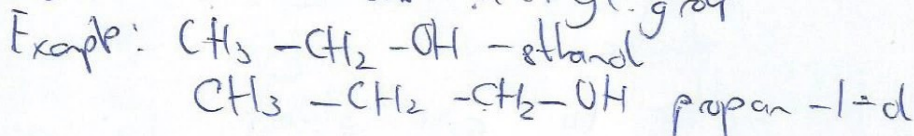 Example: CH₃ - CH₂ - OH - ethanol
CH₃ - CH₂ - CH₂ - OH propan - 1 - ol